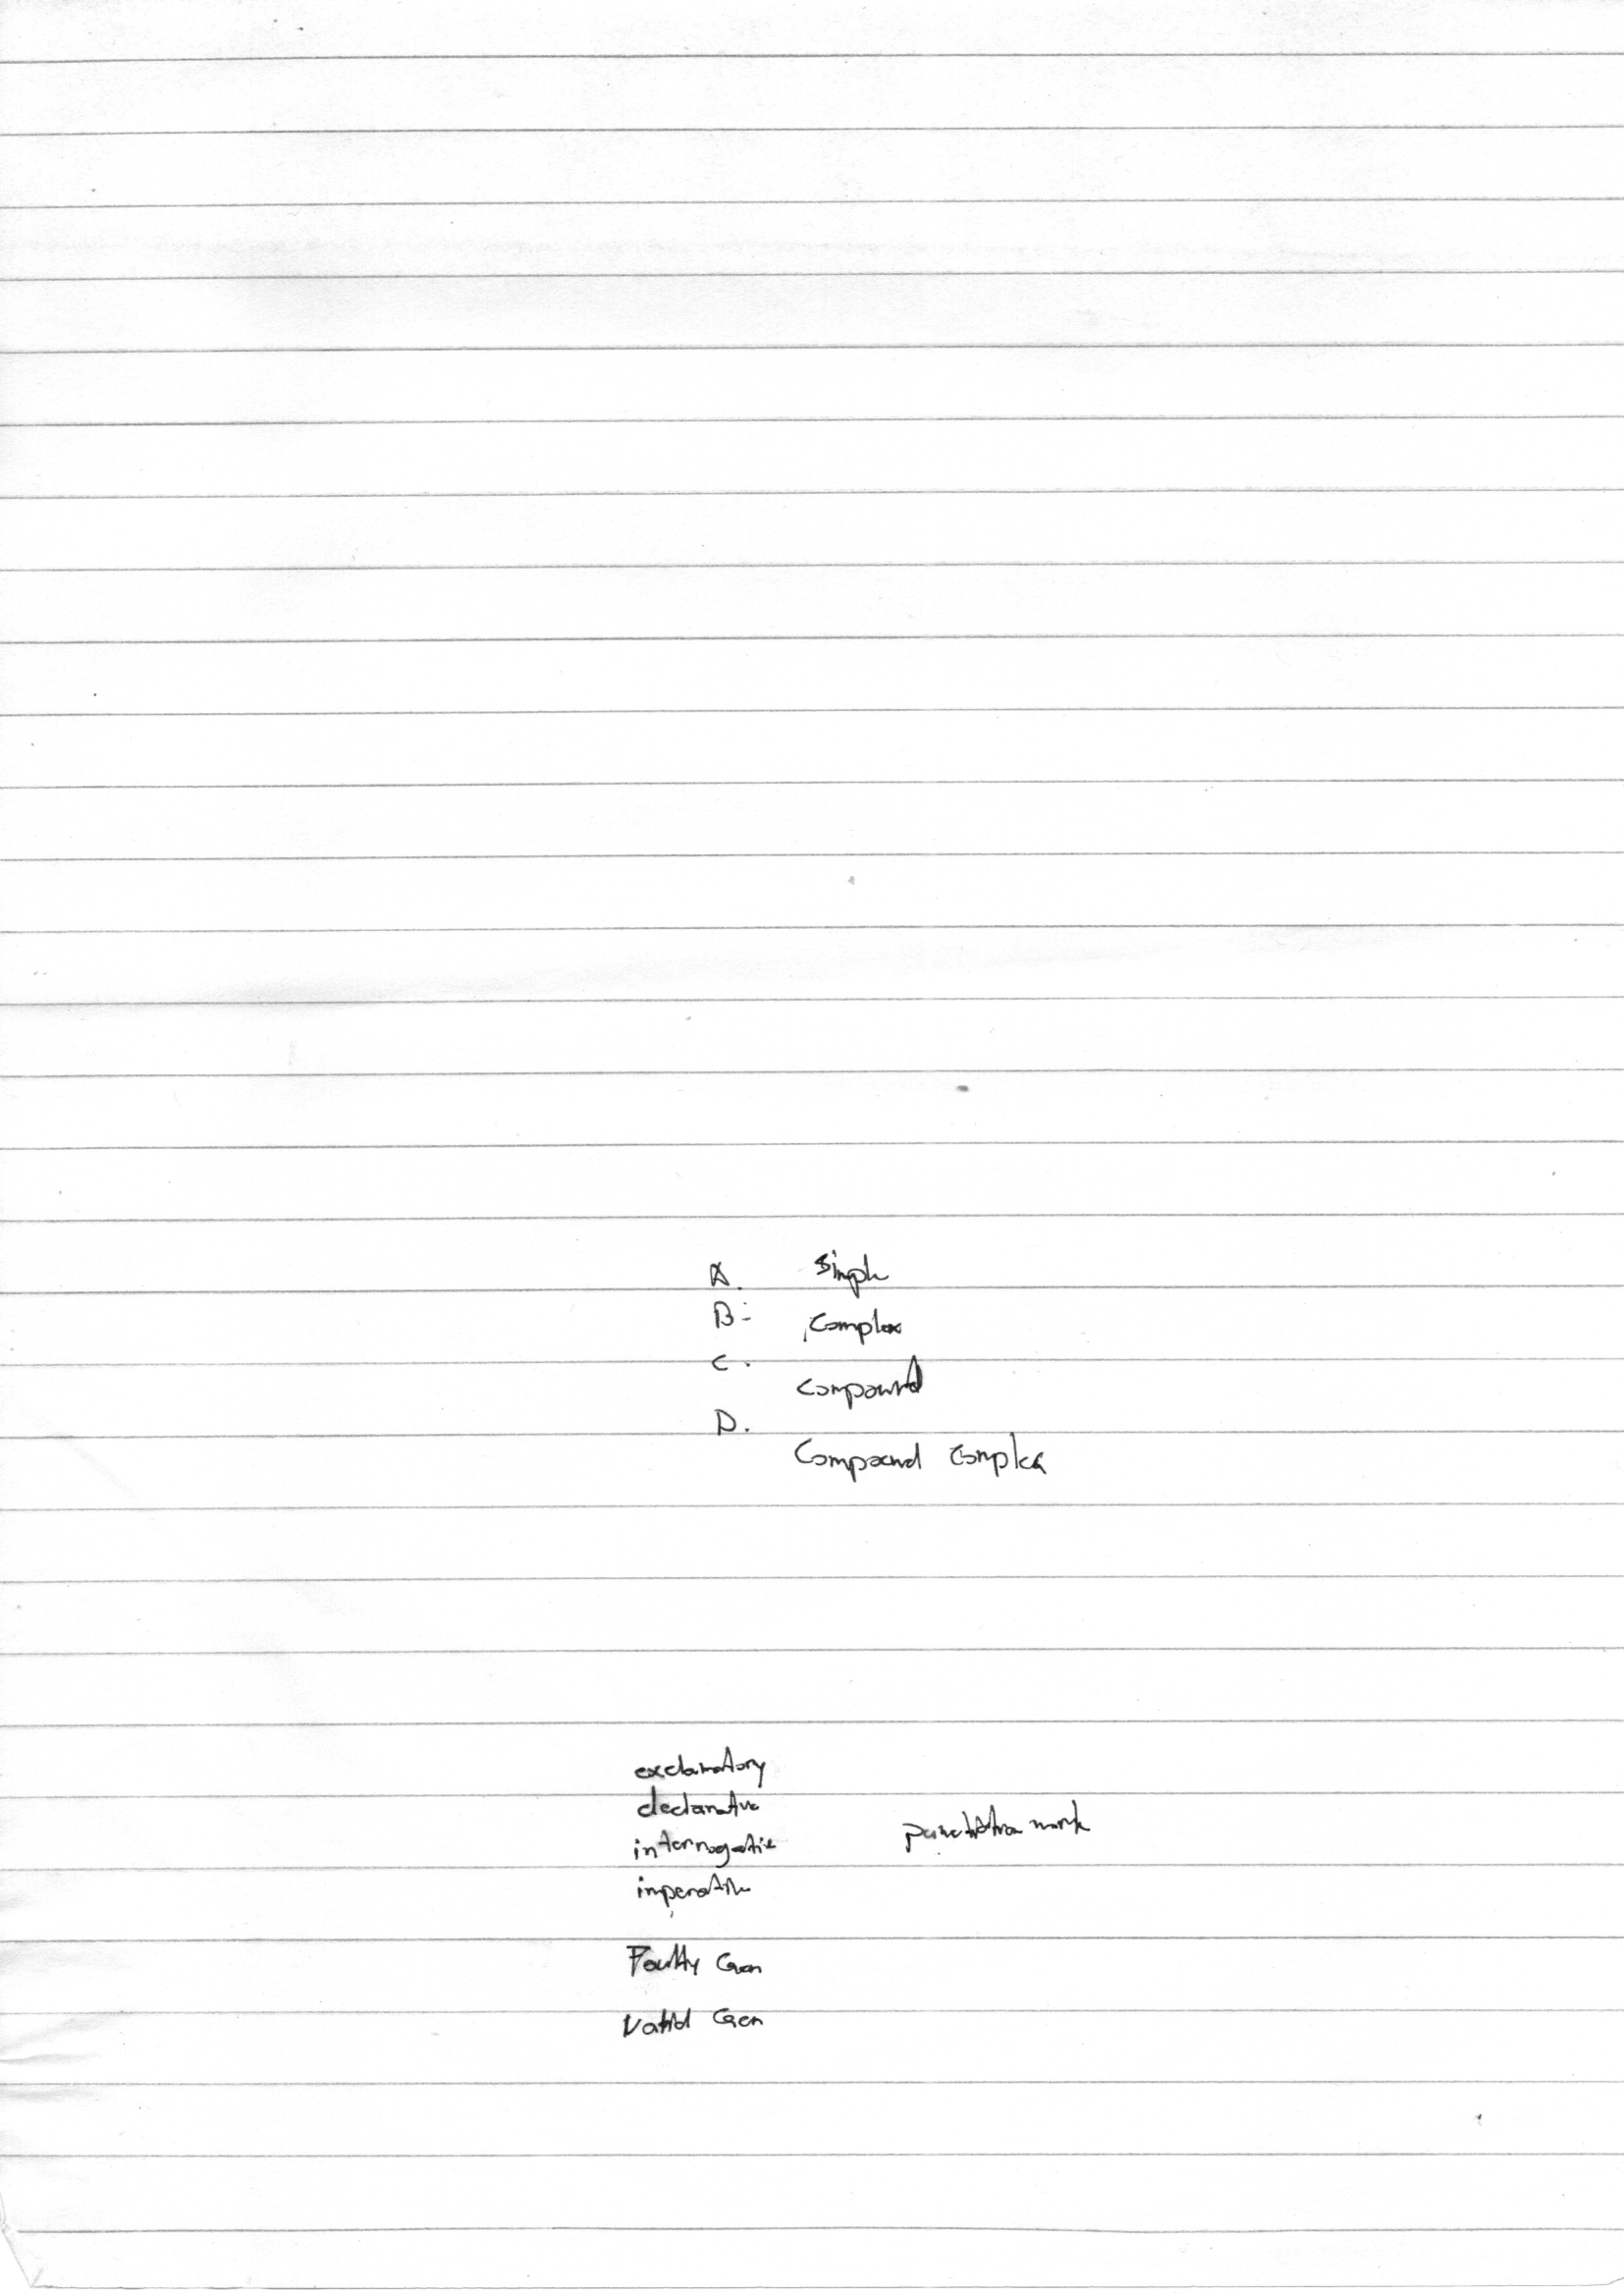 A. Simple
B- Complex
C. Compound
D. Compound Complex
exclamatory
declarative
interrogative
punctuation mark
imperative
Faulty Gen
Valid Gen